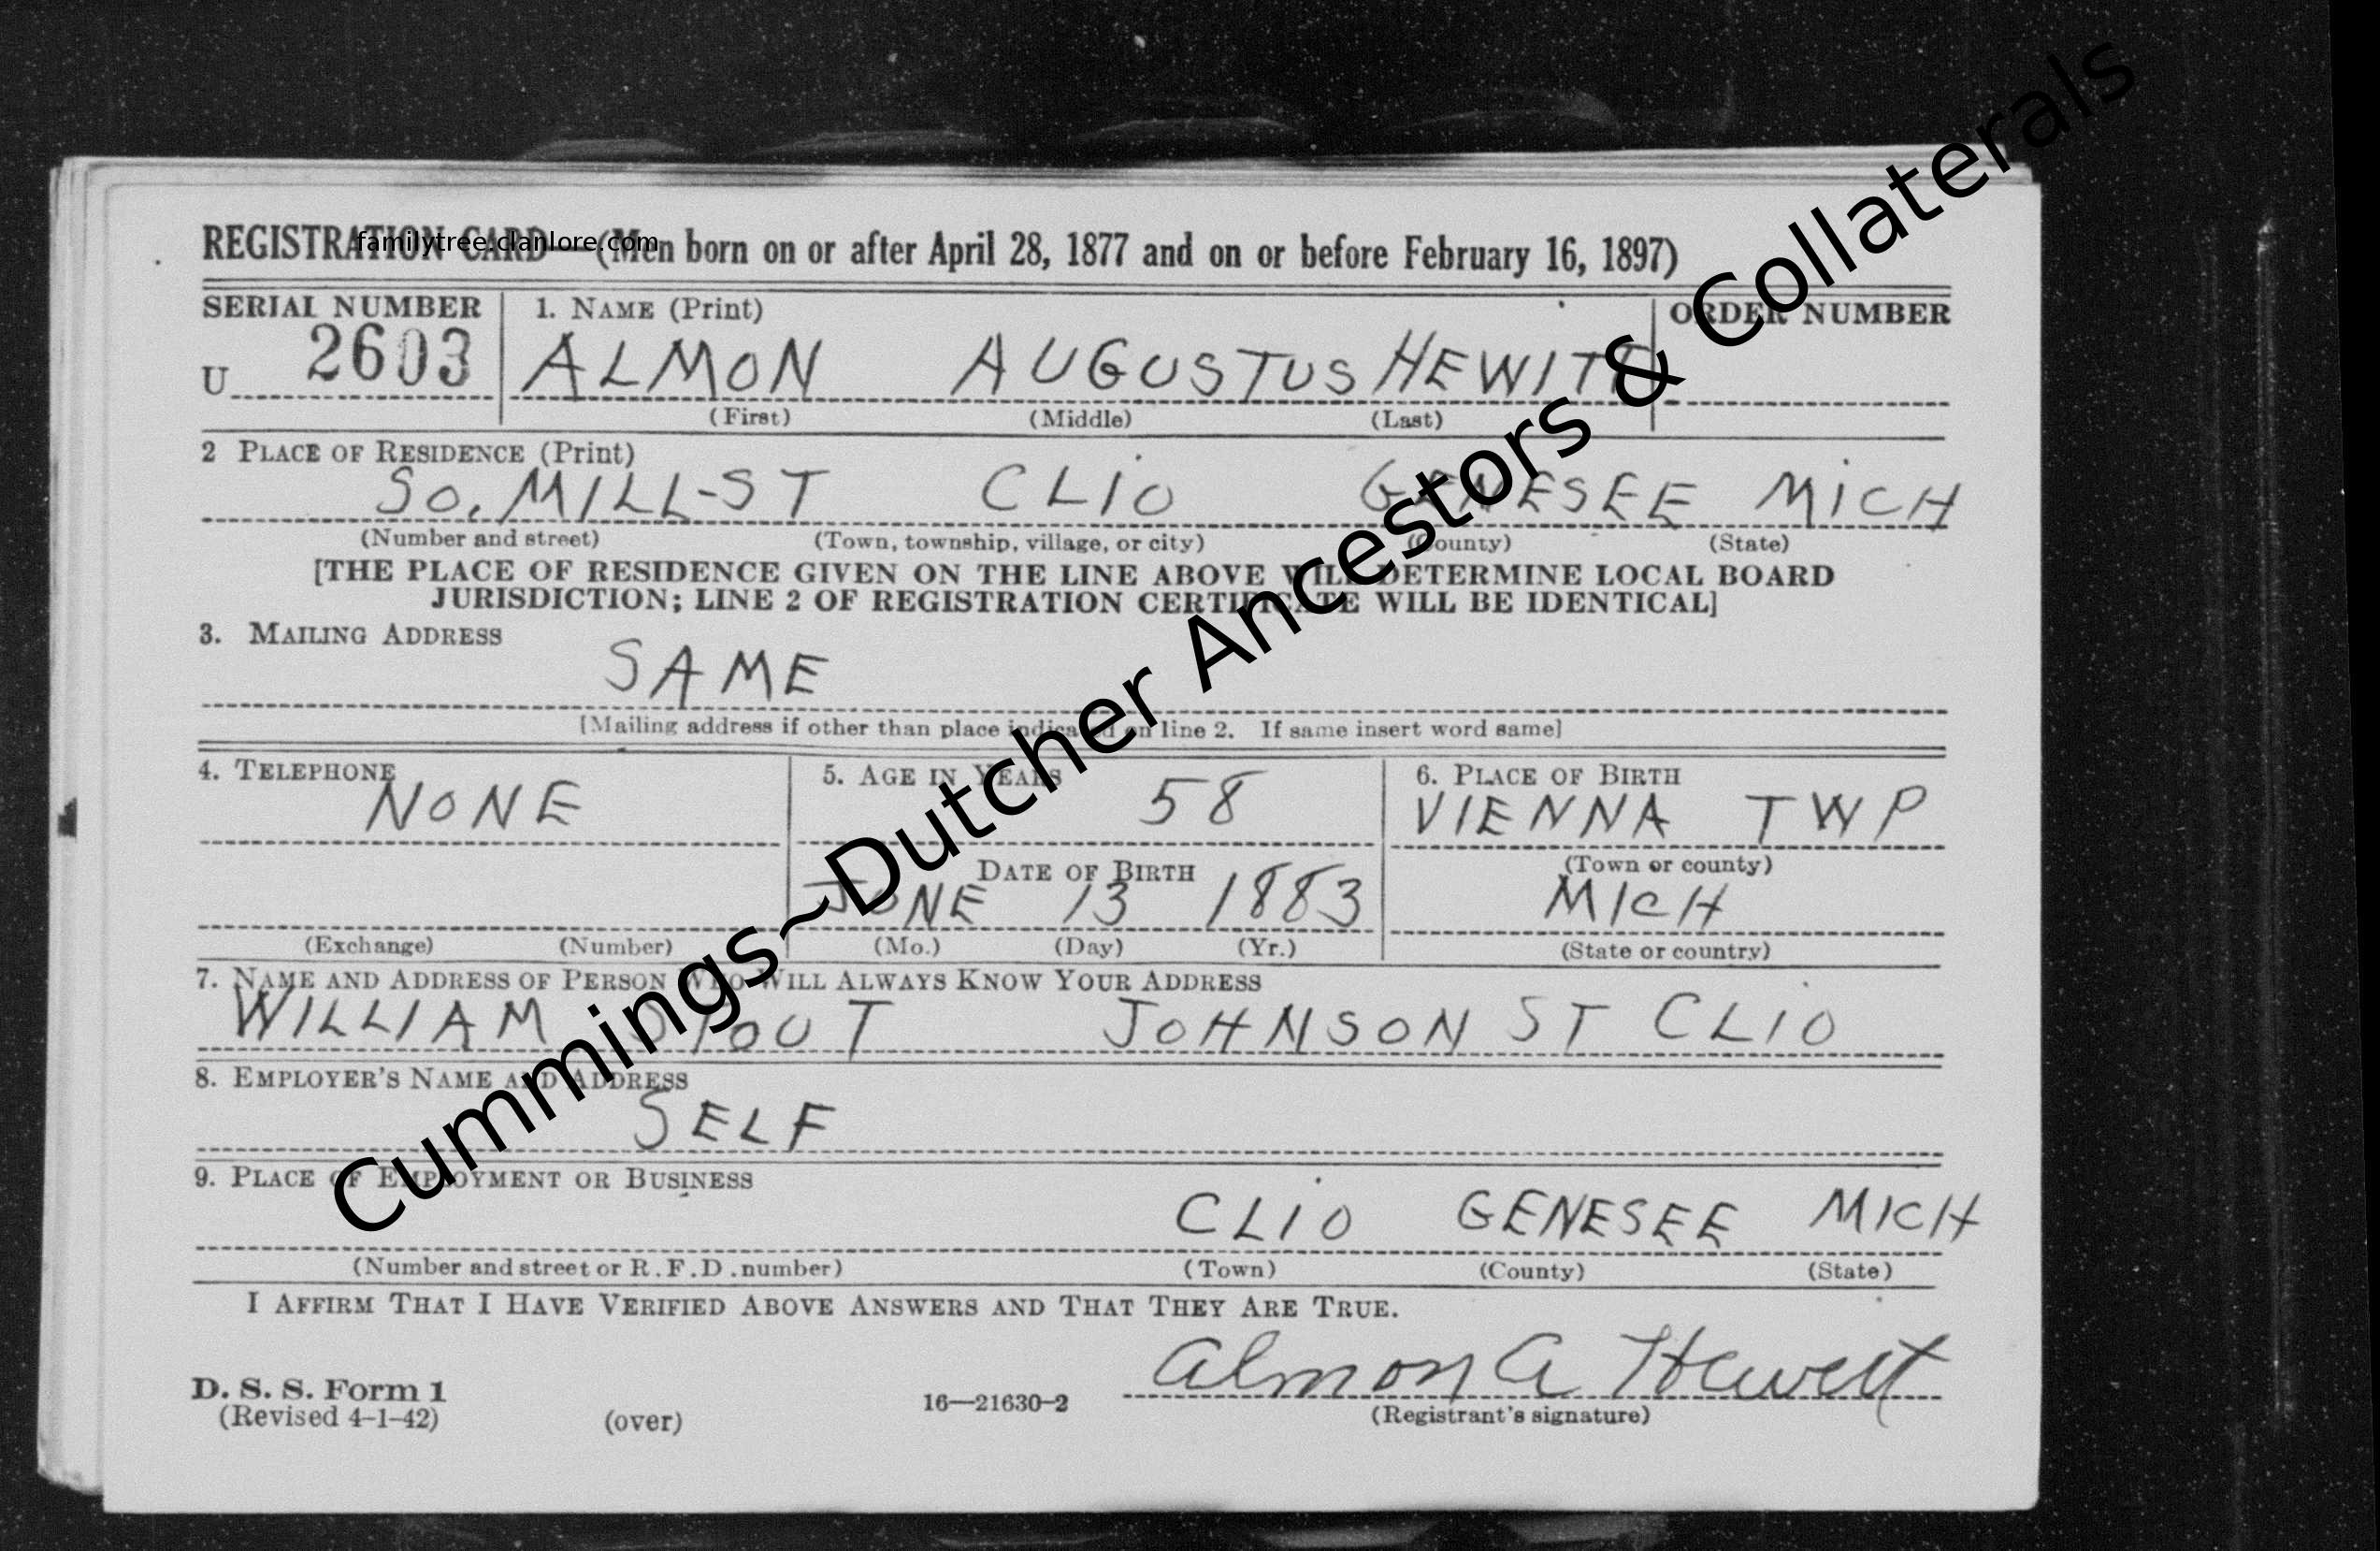 REGISTRATION CARD—(Men born on or after April 28, 1877 and on or before February 16, 1897)
familytree.clanlore.com
SERIAL NUMBER 1. NAME (Print) ORDER NUMBER
U 2603 ALMON AUGUSTUS HEWITT
(First) (Middle) (Last)
2 PLACE OF RESIDENCE (Print)
So. MILL-ST CLIO GENESEE MICH
(Number and street) (Town, township, village, or city) (County) (State)
[THE PLACE OF RESIDENCE GIVEN ON THE LINE ABOVE WILL DETERMINE LOCAL BOARD
JURISDICTION; LINE 2 OF REGISTRATION CERTIFICATE WILL BE IDENTICAL]
3. MAILING ADDRESS
SAME
[Mailing address if other than place indicated on line 2. If same insert word same]
4. TELEPHONE 5. AGE IN YEARS 6. PLACE OF BIRTH
NONE 58 VIENNA TWP
DATE OF BIRTH (Town or county)
JUNE 13 1883 MICH
(Exchange) (Number) (Mo.) (Day) (Yr.) (State or country)
7. NAME AND ADDRESS OF PERSON WHO WILL ALWAYS KNOW YOUR ADDRESS
WILLIAM STOUT JOHNSON ST CLIO
8. EMPLOYER'S NAME AND ADDRESS
SELF
9. PLACE OF EMPLOYMENT OR BUSINESS
CLIO GENESEE MICH
(Number and street or R.F.D. number) (Town) (County) (State)
I AFFIRM THAT I HAVE VERIFIED ABOVE ANSWERS AND THAT THEY ARE TRUE.
Almon A Hewett
D. S. S. Form 1
(Revised 4-1-42) (over) 16—21630-2 (Registrant's signature)
Cummings~Dutcher Ancestors & Collaterals